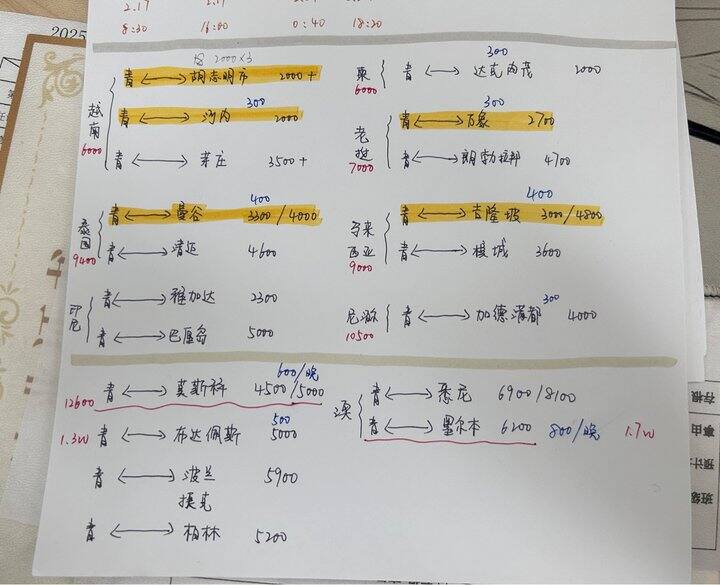 2025
2.17
8:30 16:00 0:40 18:20
2000×3
越南 6000
青 ⟷ 胡志明市 2000+
300
青 ⟷ 河内 2000
青 ⟷ 芽庄 3500+
柬 6000
300
青 ⟷ 达克内茂 2000
老挝 7000
300
青 ⟷ 万象 2700
青 ⟷ 朗勃拉邦 4700
泰国 9400
400
青 ⟷ 曼谷 3300/4000
青 ⟷ 清迈 4600
马来西亚 9000
400
青 ⟷ 吉隆坡 3000/4800
青 ⟷ 槟城 3600
印尼
青 ⟷ 雅加达 2300
青 ⟷ 巴厘岛 5000
尼泊尔 10500
300
青 ⟷ 加德满都 4000
600/晚
12600 青 ⟷ 莫斯科 4500/5000
500
1.3w 青 ⟷ 布达佩斯 5000
青 ⟷ 波兰 5900
捷克
青 ⟷ 柏林 5200
澳
青 ⟷ 悉尼 6900/8100
青 ⟷ 墨尔本 6200 800/晚 1.7w
存根
事由
预计
班级